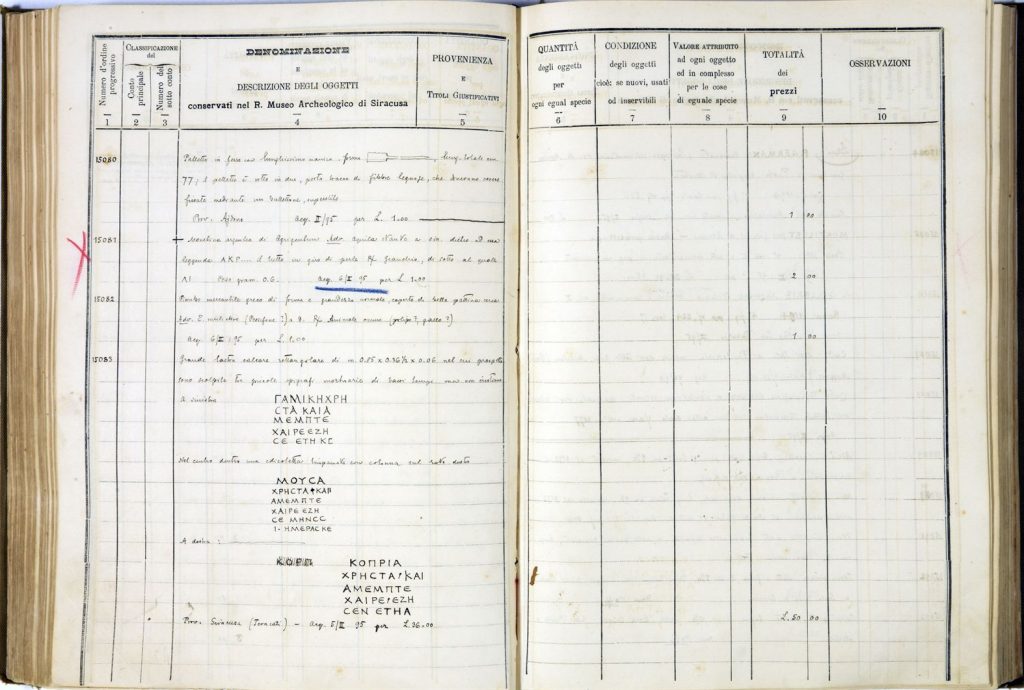 Numero d'ordine progressivo
CLASSIFICAZIONE del
Conto principale
Numero del sotto conto
DENOMINAZIONE
E
DESCRIZIONE DEGLI OGGETTI
conservati nel R. Museo Archeologico di Siracusa
PROVENIENZA
E
TITOLI GIUSTIFICATIVI
QUANTITÀ
degli oggetti
per
ogni egual specie
CONDIZIONE
degli oggetti
cioè: se nuovi, usati
od inservibili
VALORE ATTRIBUITO
ad ogni oggetto
ed in complesso
per le cose
di eguale specie
TOTALITÀ
dei
prezzi
OSSERVAZIONI
1 2 3 4 5 6 7 8 9 10
15080 Paletta in ferro con lunghissimo manico, forma lung. totale cm
77; rotto in due, porta tracce di fibbre legnose, che dovevano essere
fissate mediante un
Prov. Acq. II/95 per L. 1.00 1 00
15081 Monetina argentea di Agrigentum Adr. aquila stante a sin. dietro
leggenda AKP il tutto in giro di perle Granchio, di sotto al quale
Peso gram. 0.6 Acq. 6/II 95 per L 2 00
15082 greco di forma e grandezza normale, coperto di bella patina
Adv. (polipo?, gallo?)
Acq. 6/II 95 per L. 1.00 1 00
15083 Grande lastra calcare rettangolare di m. 0.85 x 0.36½ x 0.06 nel cui prospetto
sono scolpite tre piccole epigrafi mortuarie di bassi tempi, ma non cristiane
A sinistra
ΓΑΜΙΚΗΧΡΗ
CΤΑ ΚΑΙΑ
ΜΕΜΠΤΕ
ΧΑΙΡΕ ΕΖΗ
CΕ ΕΤΗ ΚC
Nel centro dentro una edicoletta timpanata con colonna sul lato destro
ΜΟΥCΑ
ΧΡΗCΤΑ ΚΑΙ
ΑΜΕΜΠΤΕ
ΧΑΙΡΕ ΕΖΗ
CΕ ΜΗΝCC
Ι· ΗΜΕΡΑC ΚΕ
A destra:
ΚΟΠΡΙΑ
ΧΡΗCΤΑ ΚΑΙ
ΑΜΕΜΠΤΕ
ΧΑΙΡΕ ΕΖΗ
CΕΝ ΕΤΗΑ
Prov. Siracusa (Teracati) - Acq. 5/II 95 per L. 36.00 L. 50 00